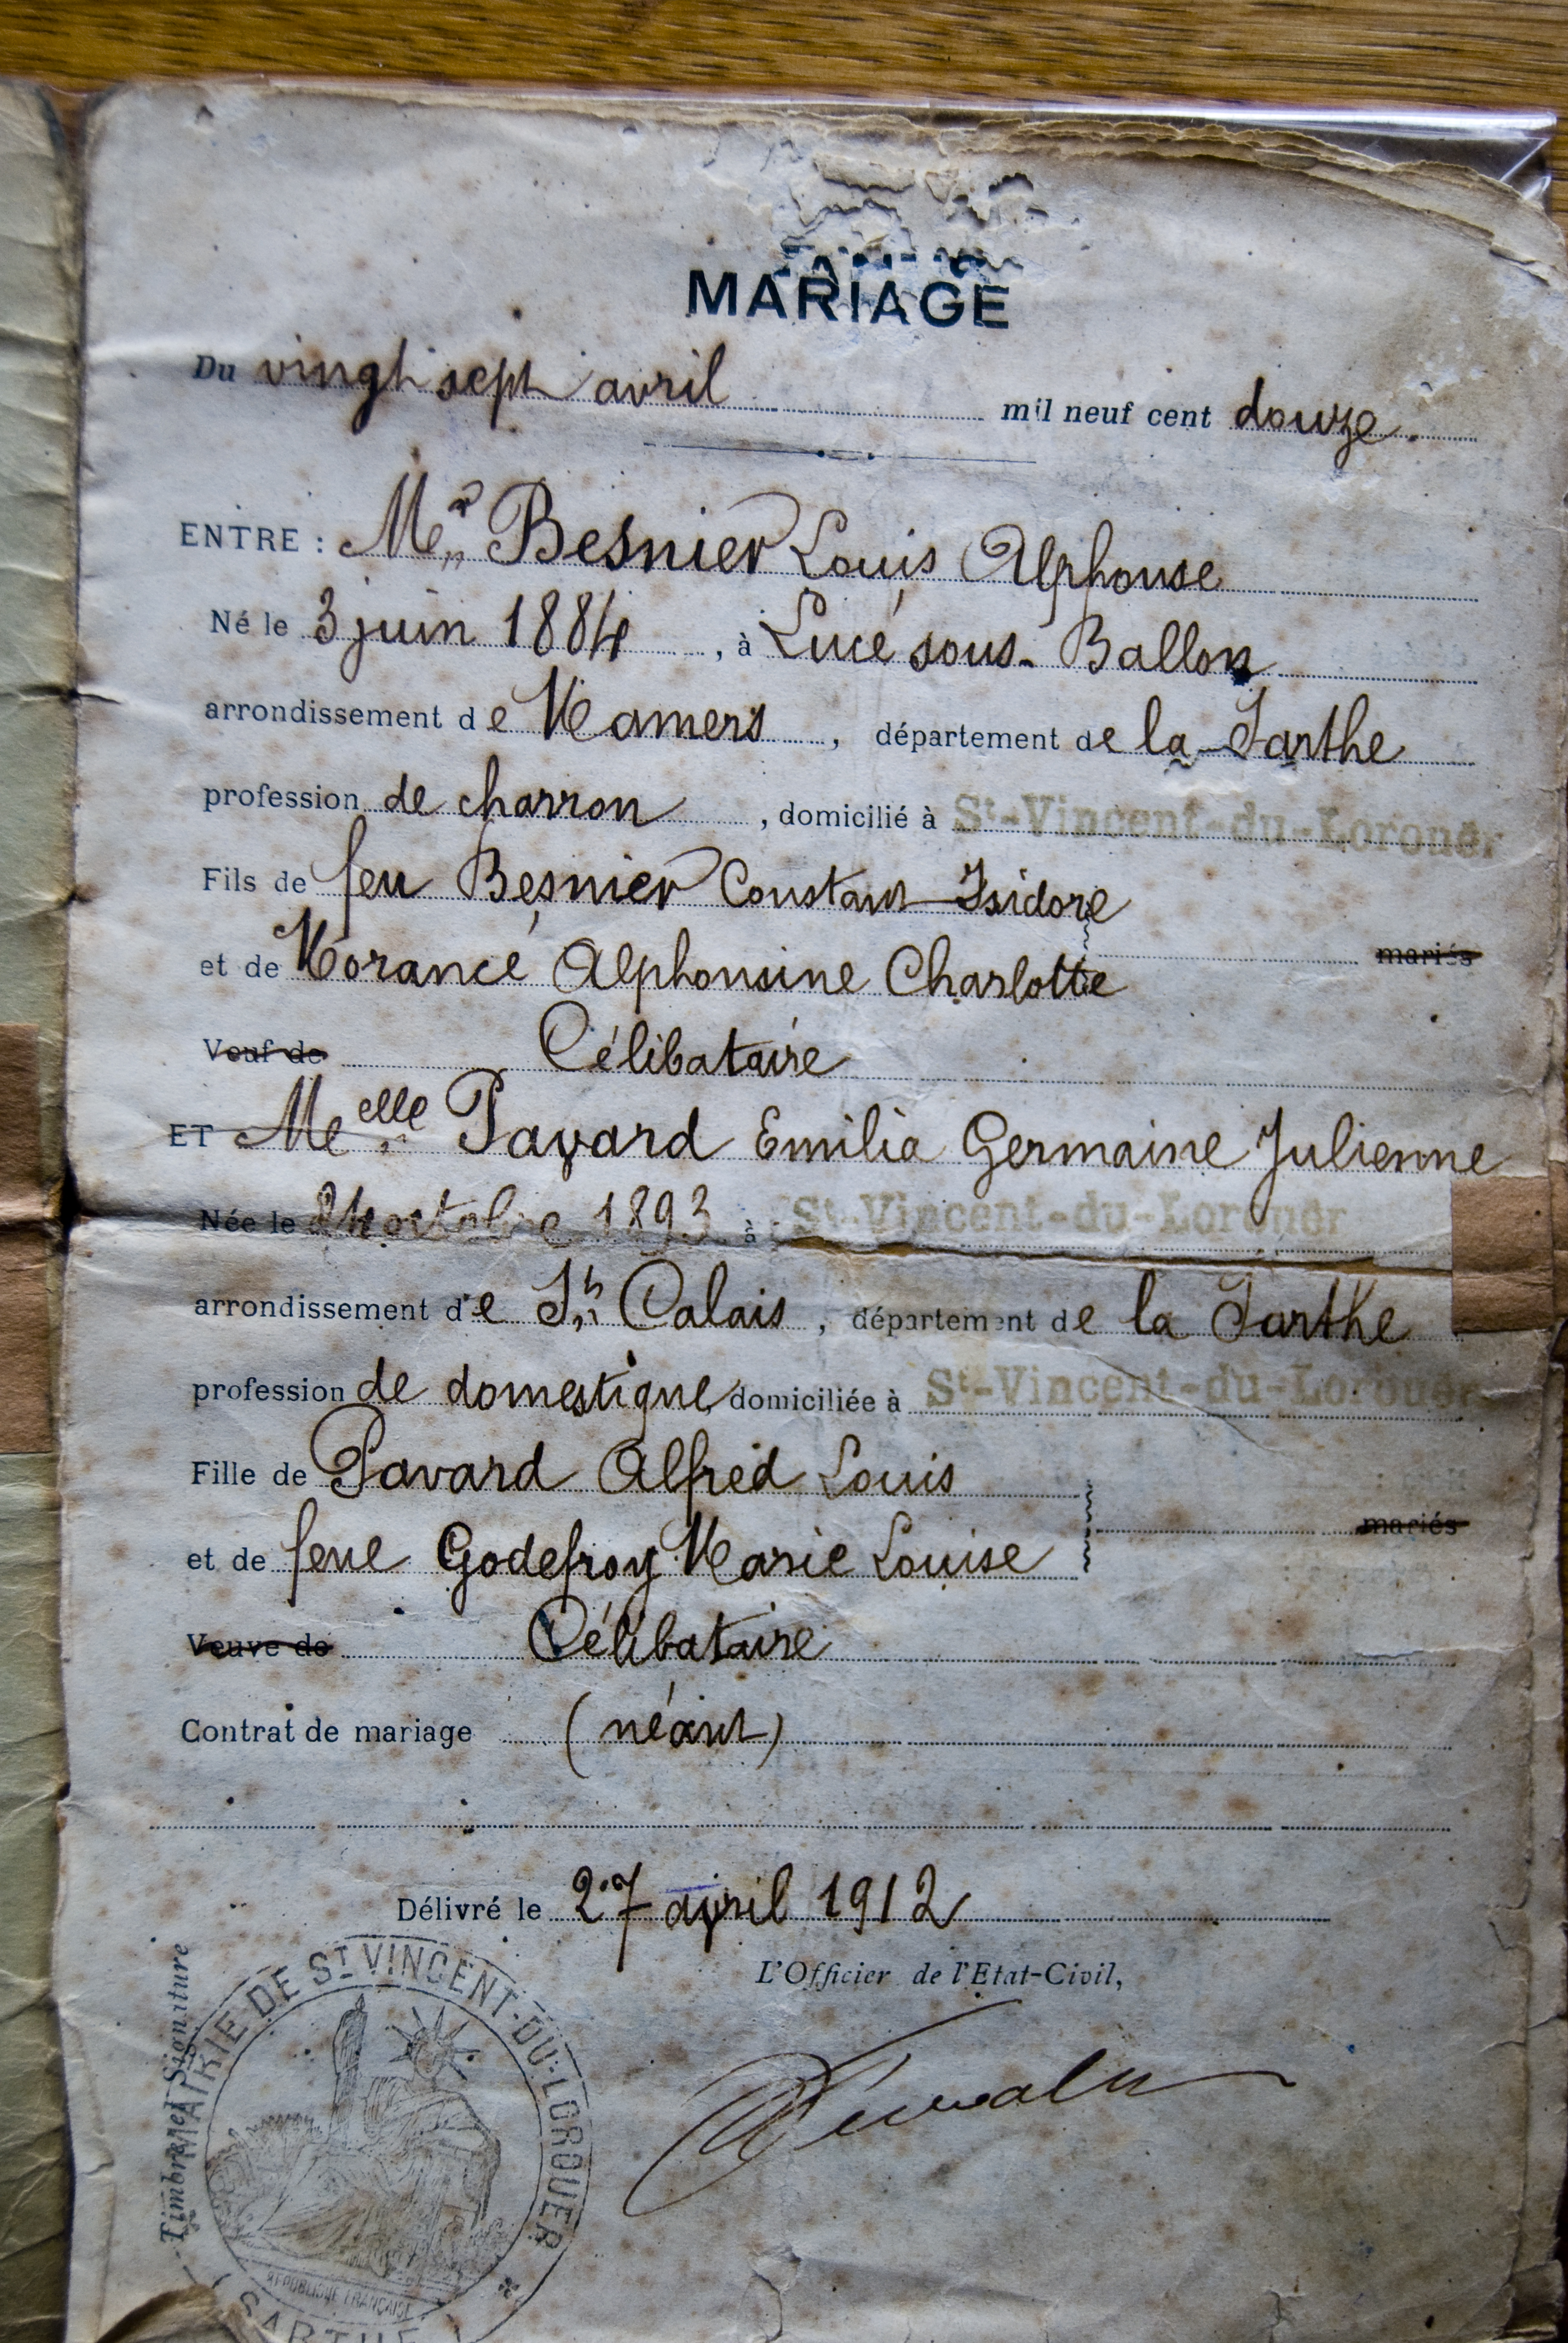 MARIAGE
Du vingt sept avril mil neuf cent douze.
ENTRE : Mr Besnier Louis Alphonse
Né le 3 juin 1884, à Lucé sous-Ballon
arrondissement de Mamers, département de la Sarthe
profession de charron, domicilié à St-Vincent-du-Lorouër
Fils de feu Besnier Constant Isidore
et de Morancé Alphonsine Charlotte mariés
Veuf de Célibataire
ET Melle Pavard Emilia Germaine Julienne
Née le octobre 1893 à St-Vincent-du-Lorouër
arrondissement de St Calais, département de la Sarthe
profession de domestique, domiciliée à St-Vincent-du-Lorouër
Fille de Pavard Alfred Louis
et de feue Godefroy Marie Louise mariés
Veuve de Célibataire
Contrat de mariage (néant)
Délivré le 27 avril 1912
L'Officier de l'Etat-Civil,
Timbre et Signature
MAIRIE DE ST VINCENT-DU-LOROUER
RÉPUBLIQUE FRANÇAISE
(SARTHE)